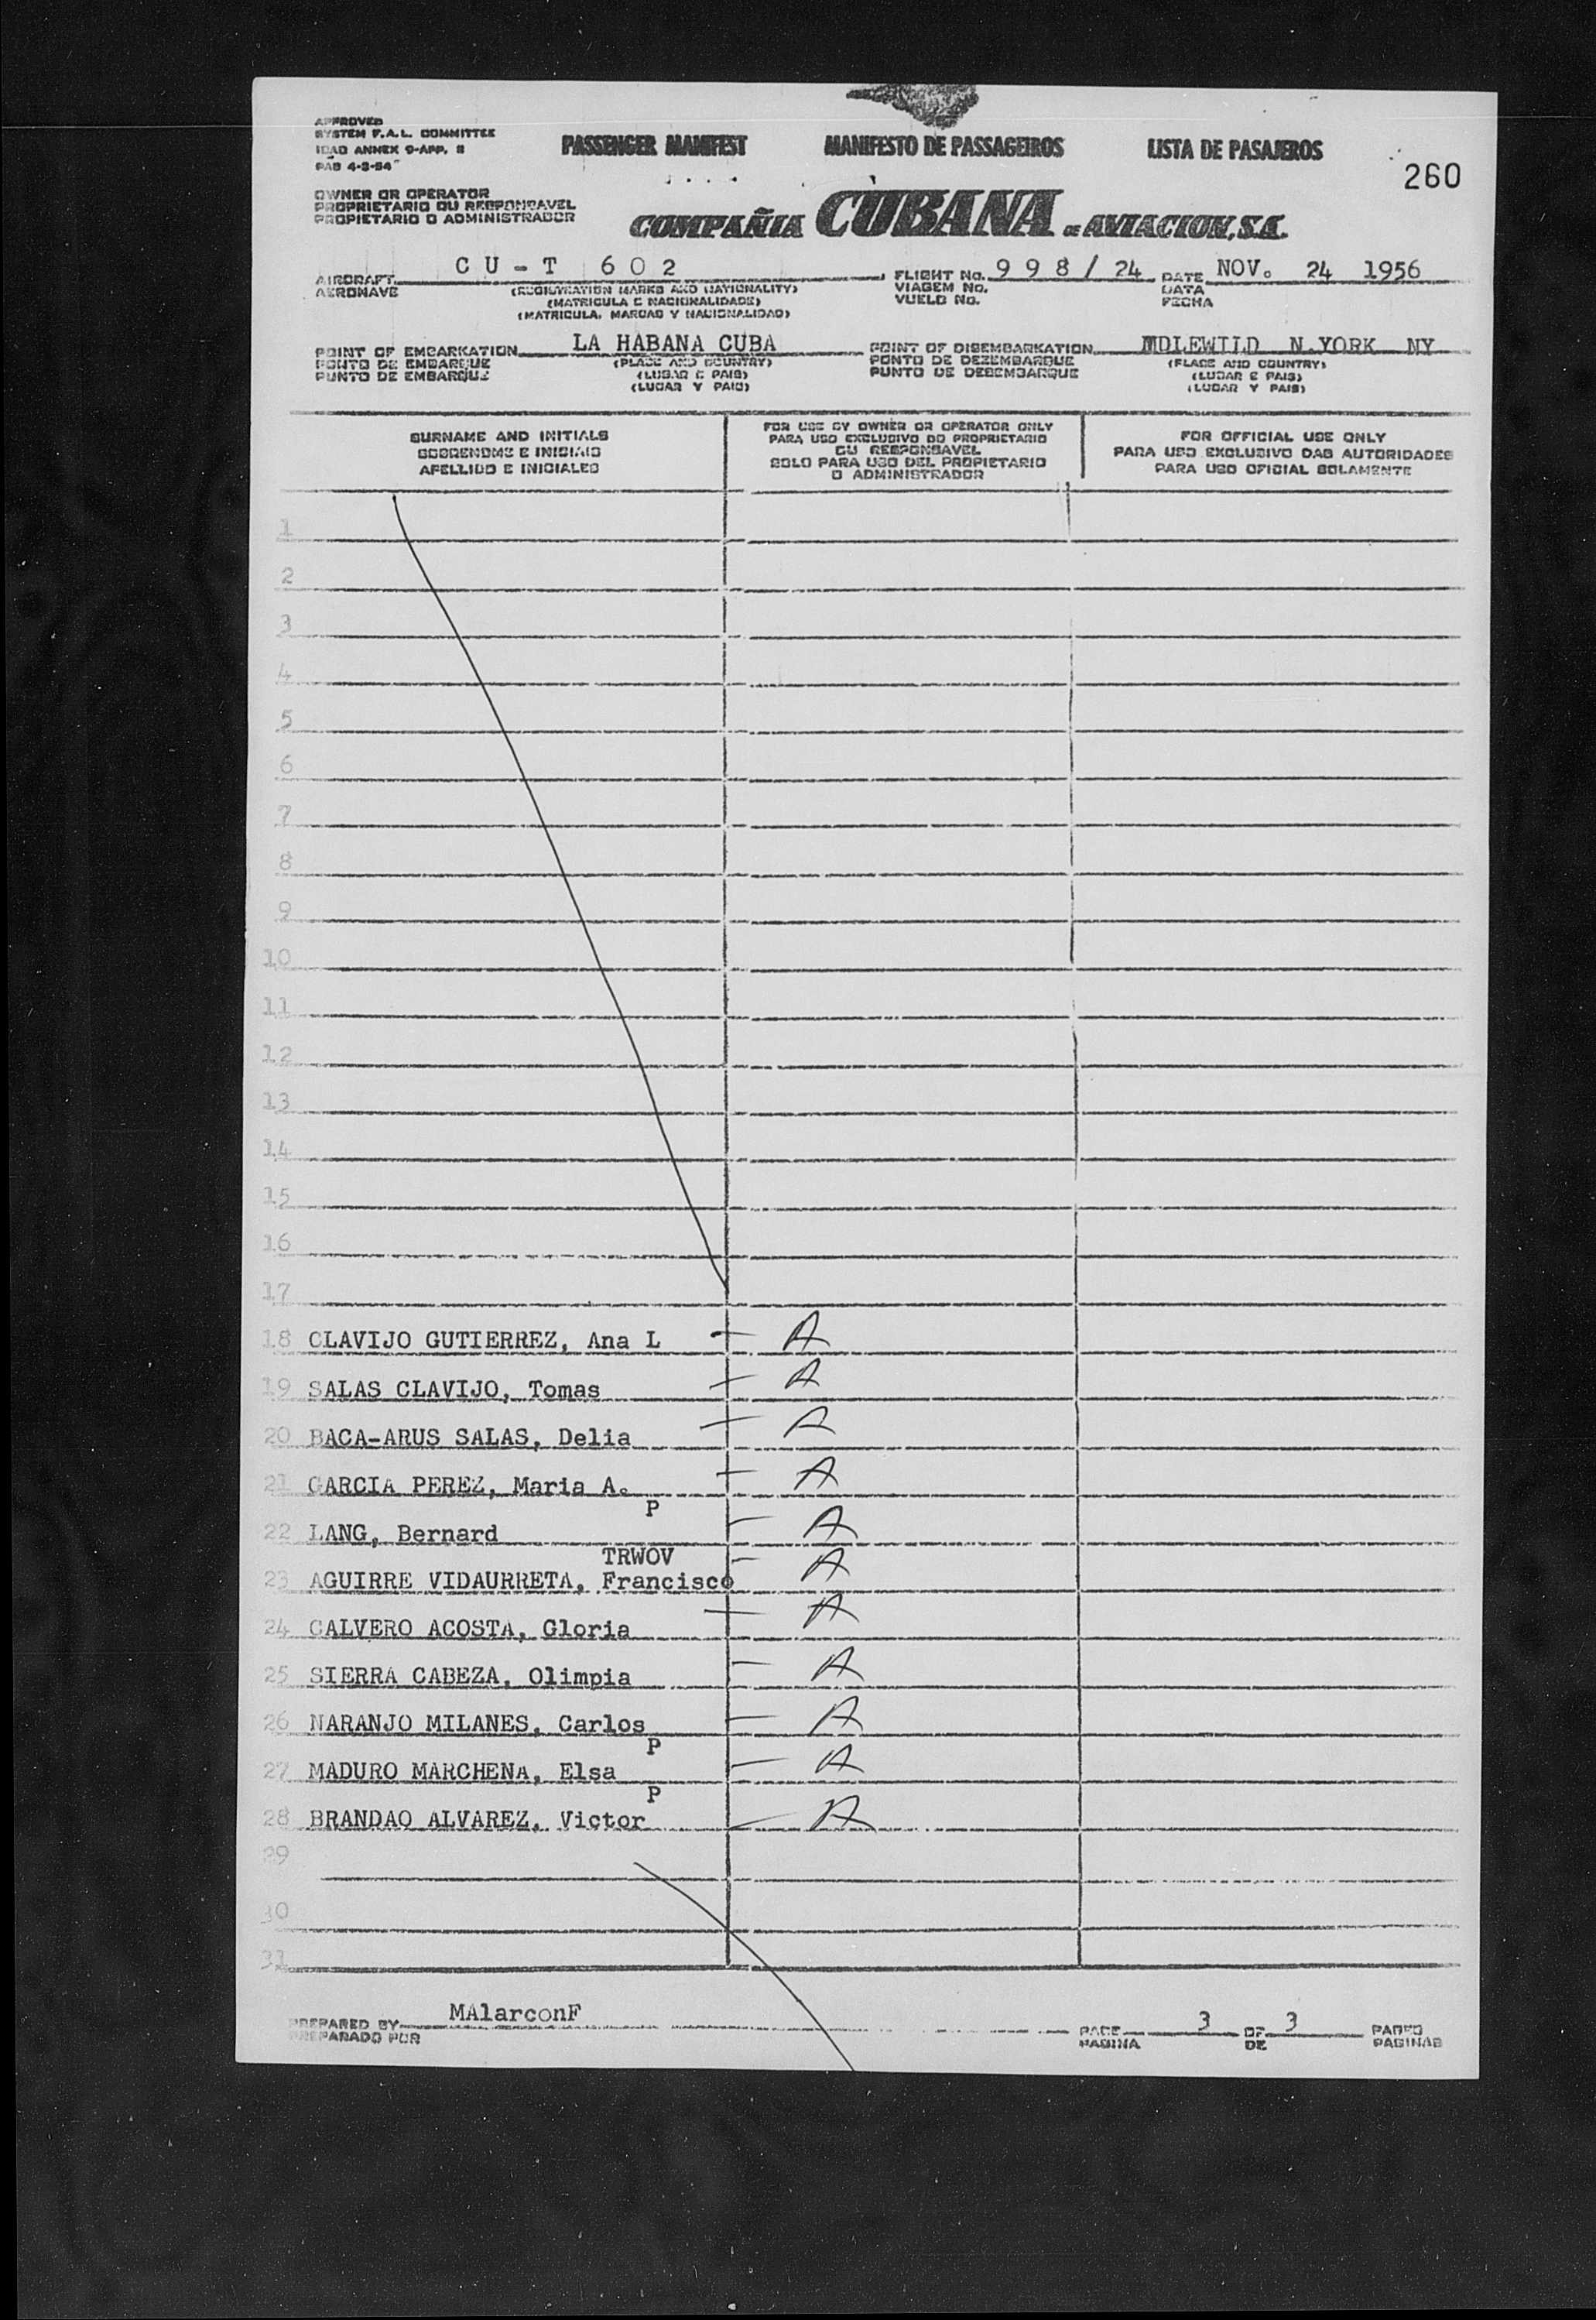 APPROVED
SYSTEM F.A.L. COMMITTEE
ICAO ANNEX 9-APP. 8
PAB 4-3-54
PASSENGER MANIFEST MANIFESTO DE PASSAGEIROS LISTA DE PASAJEROS
260
OWNER OR OPERATOR
PROPRIETARIO OU RESPONSAVEL
PROPIETARIO O ADMINISTRADOR
COMPAÑIA CUBANA DE AVIACION, S.A.
AIRCRAFT CU-T 602 FLIGHT No. 998/24 DATE NOV. 24 1956
AERONAVE (REGISTRATION MARKS AND NATIONALITY) VIAGEM No. DATA
(MATRICULA E NACIONALIDADE) VUELO No. FECHA
(MATRICULA, MARCAS Y NACIONALIDAD)
POINT OF EMBARKATION LA HABANA CUBA POINT OF DISEMBARKATION IDLEWILD N.YORK NY
PONTO DE EMBARQUE (PLACE AND COUNTRY) PONTO DE DEZEMBARQUE (PLACE AND COUNTRY)
PUNTO DE EMBARQUE (LUGAR E PAIS) PUNTO DE DESEMBARQUE (LUGAR E PAIS)
(LUGAR Y PAIS) (LUGAR Y PAIS)
SURNAME AND INITIALS
SOBRENOME E INICIAIS
APELLIDO E INICIALES
FOR USE BY OWNER OR OPERATOR ONLY
PARA USO EXCLUSIVO DO PROPRIETARIO
OU RESPONSAVEL
SOLO PARA USO DEL PROPIETARIO
O ADMINISTRADOR
FOR OFFICIAL USE ONLY
PARA USO EXCLUSIVO DAS AUTORIDADES
PARA USO OFICIAL SOLAMENTE
1
2
3
4
5
6
7
8
9
10
11
12
13
14
15
16
17
18 CLAVIJO GUTIERREZ, Ana L — A
19 SALAS CLAVIJO, Tomas — A
20 BACA-ARUS SALAS, Delia — A
21 GARCIA PEREZ, Maria A. — A
P
22 LANG, Bernard — A
TRWOV
23 AGUIRRE VIDAURRETA, Francisco — A
24 CALVERO ACOSTA, Gloria — A
25 SIERRA CABEZA, Olimpia — A
26 NARANJO MILANES, Carlos — A
P
27 MADURO MARCHENA, Elsa — A
P
28 BRANDAO ALVAREZ, Victor — A
29
30
31
PREPARED BY MAlarconF PAGE 3 OF 3 PAGES
PREPARADO POR PAGINA DE PAGINAS